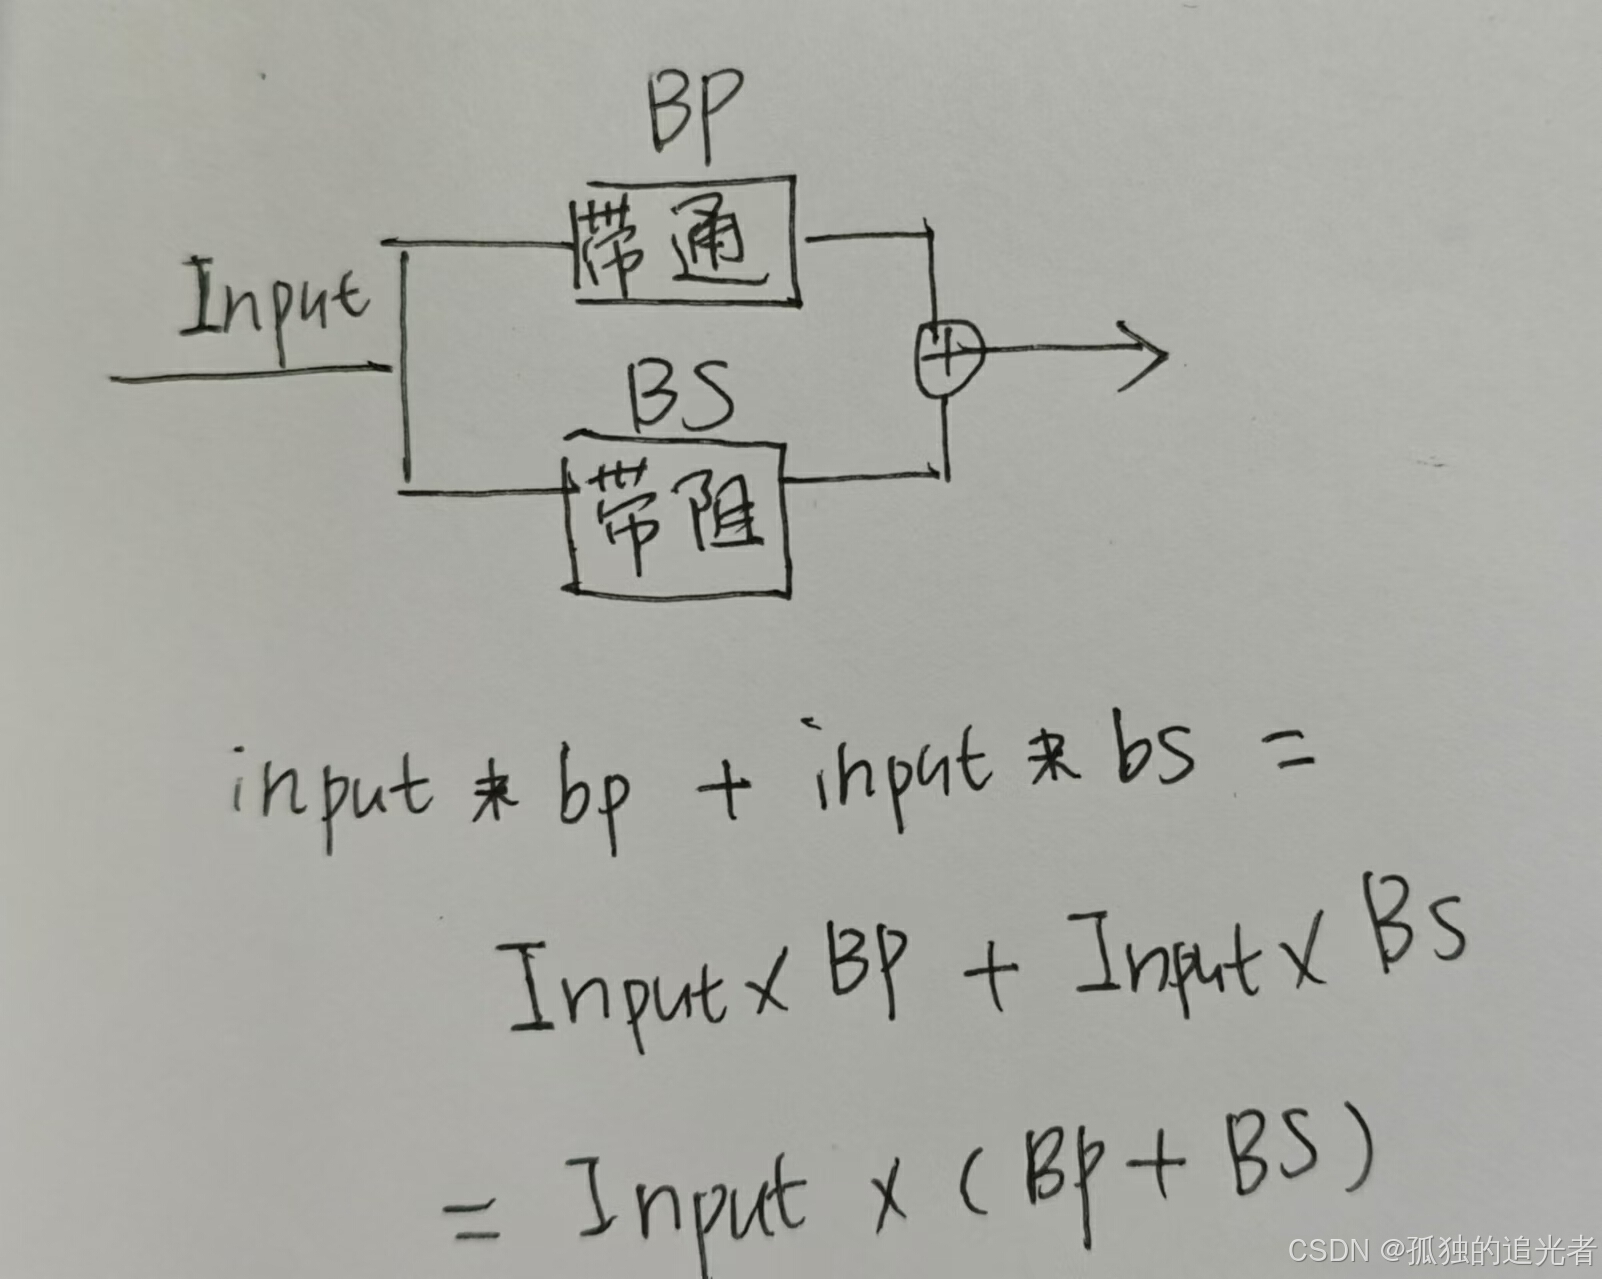 BP
带通
Input
BS
带阻
input * bp + input * bs =
Input × BP + Input × BS
= Input × (BP + BS)
CSDN @孤独的追光者